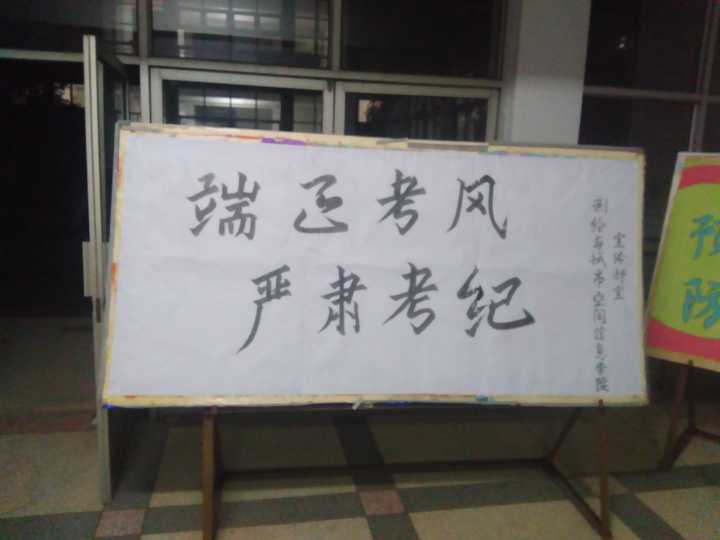 端正考风
严肃考纪
测绘与城市空间信息学院
宣传部宣
预
防